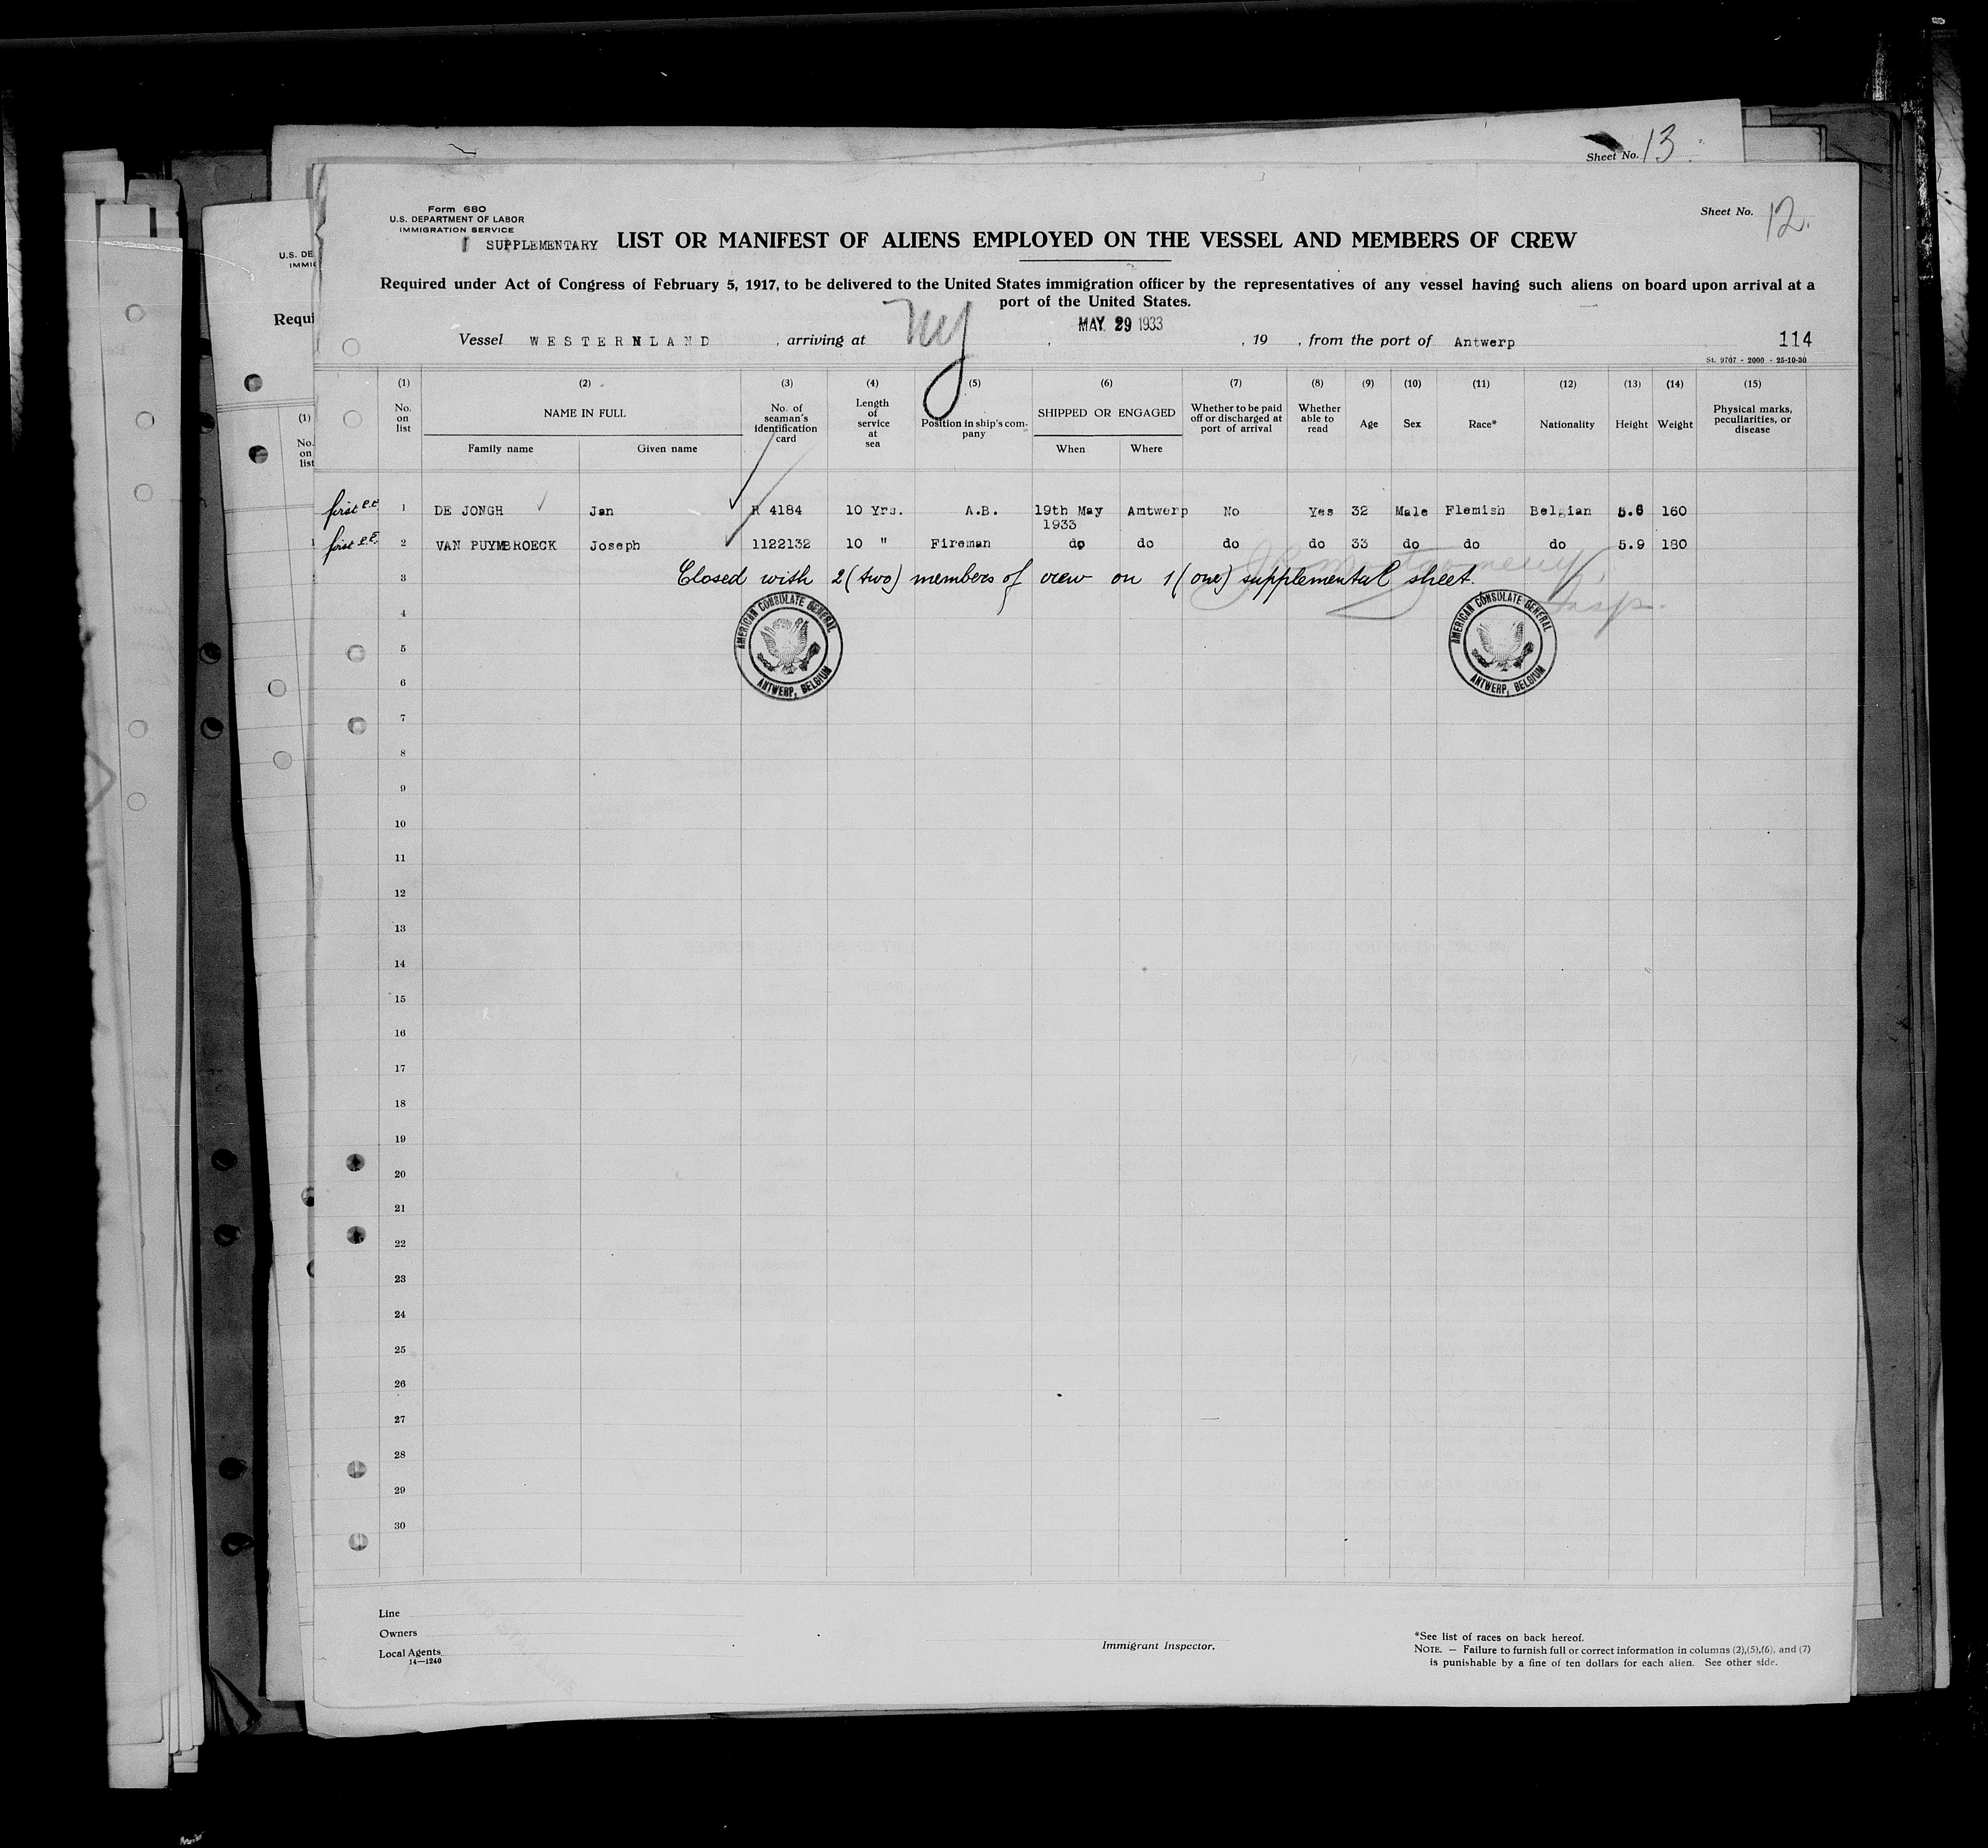 Sheet No. 13.
Form 680
U.S. DEPARTMENT OF LABOR
IMMIGRATION SERVICE
Sheet No. 12.
SUPPLEMENTARY LIST OR MANIFEST OF ALIENS EMPLOYED ON THE VESSEL AND MEMBERS OF CREW
U.S. DE
IMMIG
Required under Act of Congress of February 5, 1917, to be delivered to the United States immigration officer by the representatives of any vessel having such aliens on board upon arrival at a
port of the United States.
Requi
MAY 29 1933
Vessel WESTERNLAND , arriving at NY , , 19 , from the port of Antwerp 114
St. 9707 - 2000 - 25-10-30
(1) (2) (3) (4) (5) (6) (7) (8) (9) (10) (11) (12) (13) (14) (15)
No. on list NAME IN FULL No. of seaman's identification card Length of service at sea Position in ship's company SHIPPED OR ENGAGED Whether to be paid off or discharged at port of arrival Whether able to read Age Sex Race* Nationality Height Weight Physical marks, peculiarities, or disease
Family name Given name When Where
(1)
No.
on
list
first 1 DE JONGH Jan R 4184 10 Yrs. A.B. 19th May 1933 Amtwerp No Yes 32 Male Flemish Belgian 5.6 160
first 2 VAN PUYMBROECK Joseph 1122132 10 " Fireman do do do do 33 do do do 5.9 180
3 Closed with 2 (two) members of crew on 1 (one) supplemental sheet.
J. Montgomery
Insp.
4
AMERICAN CONSULATE GENERAL
ANTWERP, BELGIUM
AMERICAN CONSULATE GENERAL
ANTWERP, BELGIUM
5
6
7
8
9
10
11
12
13
14
15
16
17
18
19
20
21
22
23
24
25
26
27
28
29
30
Line
Owners
Local Agents
14—1240
Immigrant Inspector.
*See list of races on back hereof.
NOTE. — Failure to furnish full or correct information in columns (2),(5),(6), and (7)
is punishable by a fine of ten dollars for each alien. See other side.